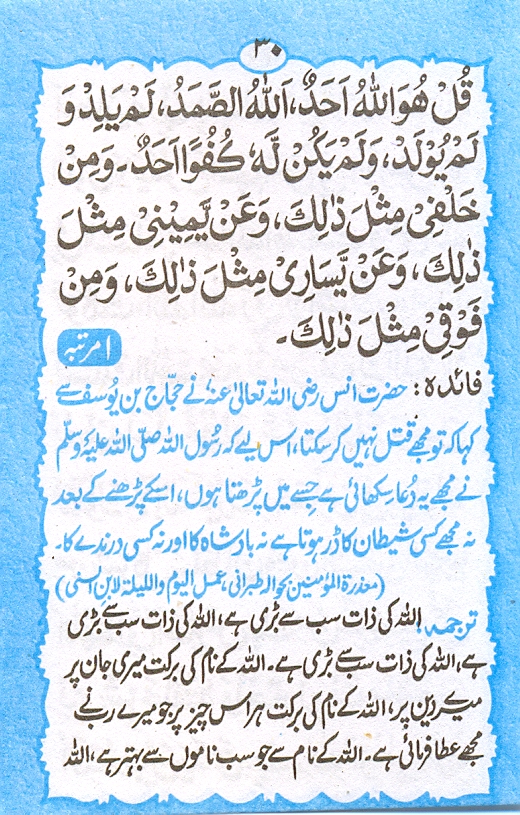 ۳۰
قُلْ هُوَ اللّٰهُ اَحَدٌ، اَللّٰهُ الصَّمَدُ، لَمْ يَلِدْ وَ
لَمْ يُوْلَدْ، وَلَمْ يَكُنْ لَّهٗ كُفُوًا اَحَدٌ۔ وَمِنْ
خَلْفِىْ مِثْلَ ذٰلِكَ، وَعَنْ يَّمِيْنِىْ مِثْلَ
ذٰلِكَ، وَعَنْ يَّسَارِىْ مِثْلَ ذٰلِكَ، وَمِنْ
فَوْقِىْ مِثْلَ ذٰلِكَ۔
۱ مرتبہ
فائدہ: حضرت انس رضی اللہ تعالیٰ عنہ نے حجّاج بن یُوسف سے
کہا کہ تو مجھے قتل نہیں کر سکتا، اس لیے کہ رسُول اللہ صلّی اللہ علیہ وسلّم
نے مجھے یہ دُعا سکھائی ہے جِسے میں پڑھتا ہوں، اسکے پڑھنے کے بعد
نہ مجھے کسی شیطان کا ڈر ہوتا ہے نہ بادشاہ کا اور نہ کسی درندے کا۔
(معذرة المؤمنین بحوالہ طبرانی، عمل الیوم واللیلة لابن السنی)
ترجمہ: اللہ کی ذات سب سے بڑی ہے، اللہ کی ذات سب سے بڑی
ہے، اللہ کی ذات سب سے بڑی ہے۔ اللہ کے نام کی برکت میری جان پر
میرے دین پر، اللہ کے نام کی برکت ہر اس چیز پر جو میرے رب نے
مجھے عطا فرمائی ہے۔ اللہ کے نام سے جو سب ناموں سے بہتر ہے، اللہ